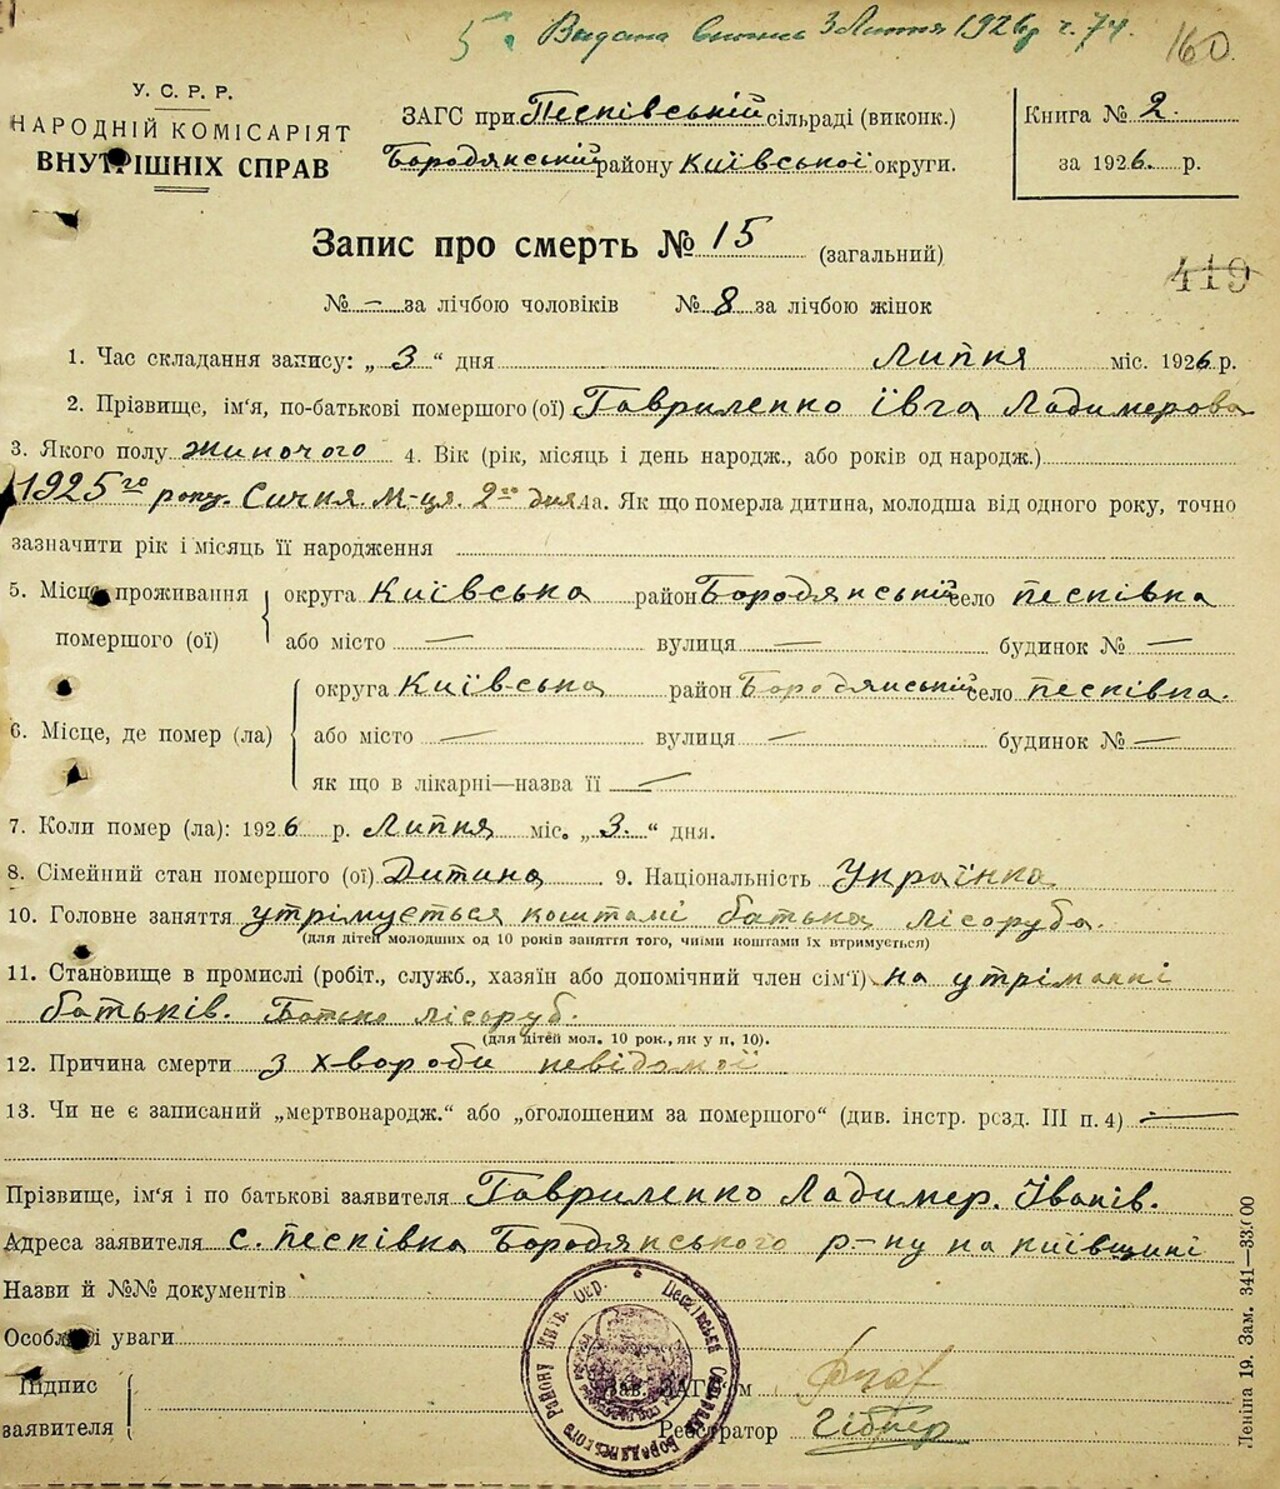 5. Видана випись 3 Липня 1926р ч. 74.
160
У. С. Р. Р.
НАРОДНІЙ КОМІСАРІЯТ
ВНУТРІШНІХ СПРАВ
ЗАГС при Песківській сільраді (виконк.)
Бородянський району Київської округи.
Книга № 2.
за 1926. р.
Запис про смерть № 15 (загальний)
419
№ — за лічбою чоловіків № 8 за лічбою жінок
1. Час складання запису: „ 3 “ дня Липня міс. 1926 р.
2. Прізвище, ім‘я, по-батькові помершого (ої) Гавриленко Ївга Ладимерова
3. Якого полу жиночого 4. Вік (рік, місяць і день народж., або років од народж.)
1925го року. Сичня М-ця. 2го дня 4а. Як що померла дитина, молодша від одного року, точно
зазначити рік і місяць її народження
5. Місце проживання помершого (ої) округа Київська район Бородянський село Песківка
або місто — вулиця — будинок № —
6. Місце, де помер (ла) округа Київська район Бородянський село Песківка.
або місто — вулиця — будинок № —
як що в лікарні—назва її —
7. Коли помер (ла): 1926 р. Липня міс. „ 3. “ дня.
8. Сімейний стан помершого (ої) Дитина 9. Національність Українка
10. Головне заняття утрімується коштамі батька лісоруба.
(для дітей молодших од 10 років заняття того, чиїми коштами їх втримується)
11. Становище в промислі (робіт., служб., хазяїн або допомічний член сім‘ї) на утріманні
батьків. Батько лісоруб.
(для дітей мол. 10 рок., як у п. 10).
12. Причина смерти з хвороби невідомої
13. Чи не є записаний „мертвонародж.“ або „оголошеним за помершого“ (див. інстр. розд. III п. 4) —
Прізвище, ім‘я і по батькові заявителя Гавриленко Ладимер. Іванів.
Адреса заявителя с. Песківка Бородянського р-ну на київщині
Назви й №№ документів
Особливі уваги
Підпис
заявителя
Зав. ЗАГС‘ом
Реєстратор
Песківська Сільрада Бородянського Району Київ. Окр.
Леніна 19. Зам. 341—33.000